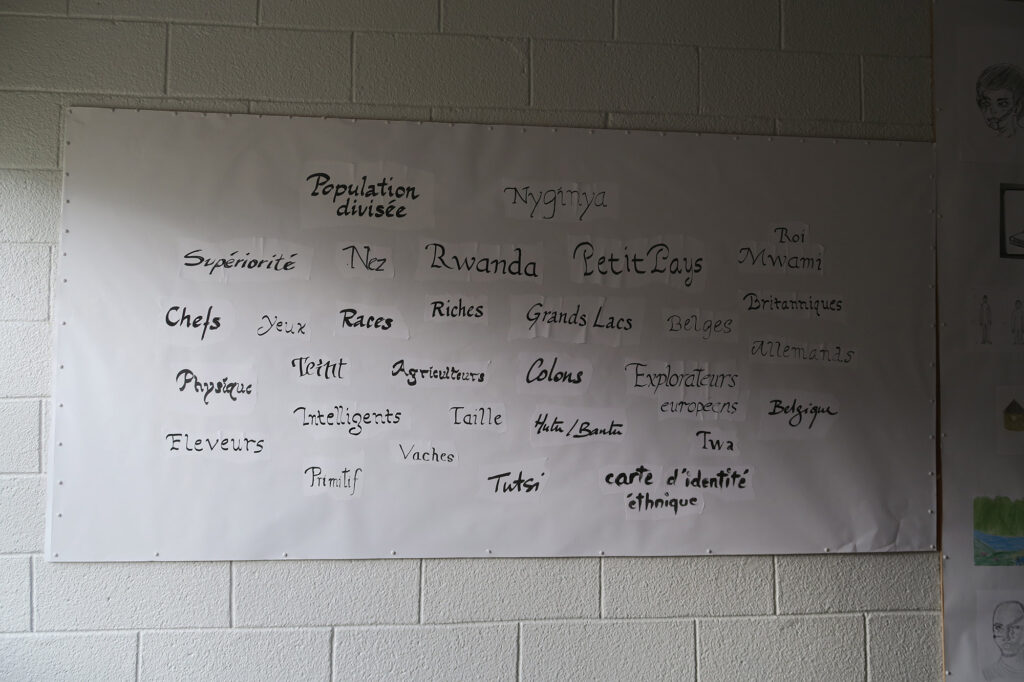 Population
divisée
Nyginya
Supériorité
Nez
Rwanda
Petit Pays
Roi
Mwami
Chefs
Yeux
Races
Riches
Grands Lacs
Belges
Britanniques
Allemands
Physique
Teint
Agriculteurs
Colons
Explorateurs
européens
Belgique
Intelligents
Taille
Hutu/Bantu
Twa
Eleveurs
Vaches
Primitif
Tutsi
carte d'identité
éthnique